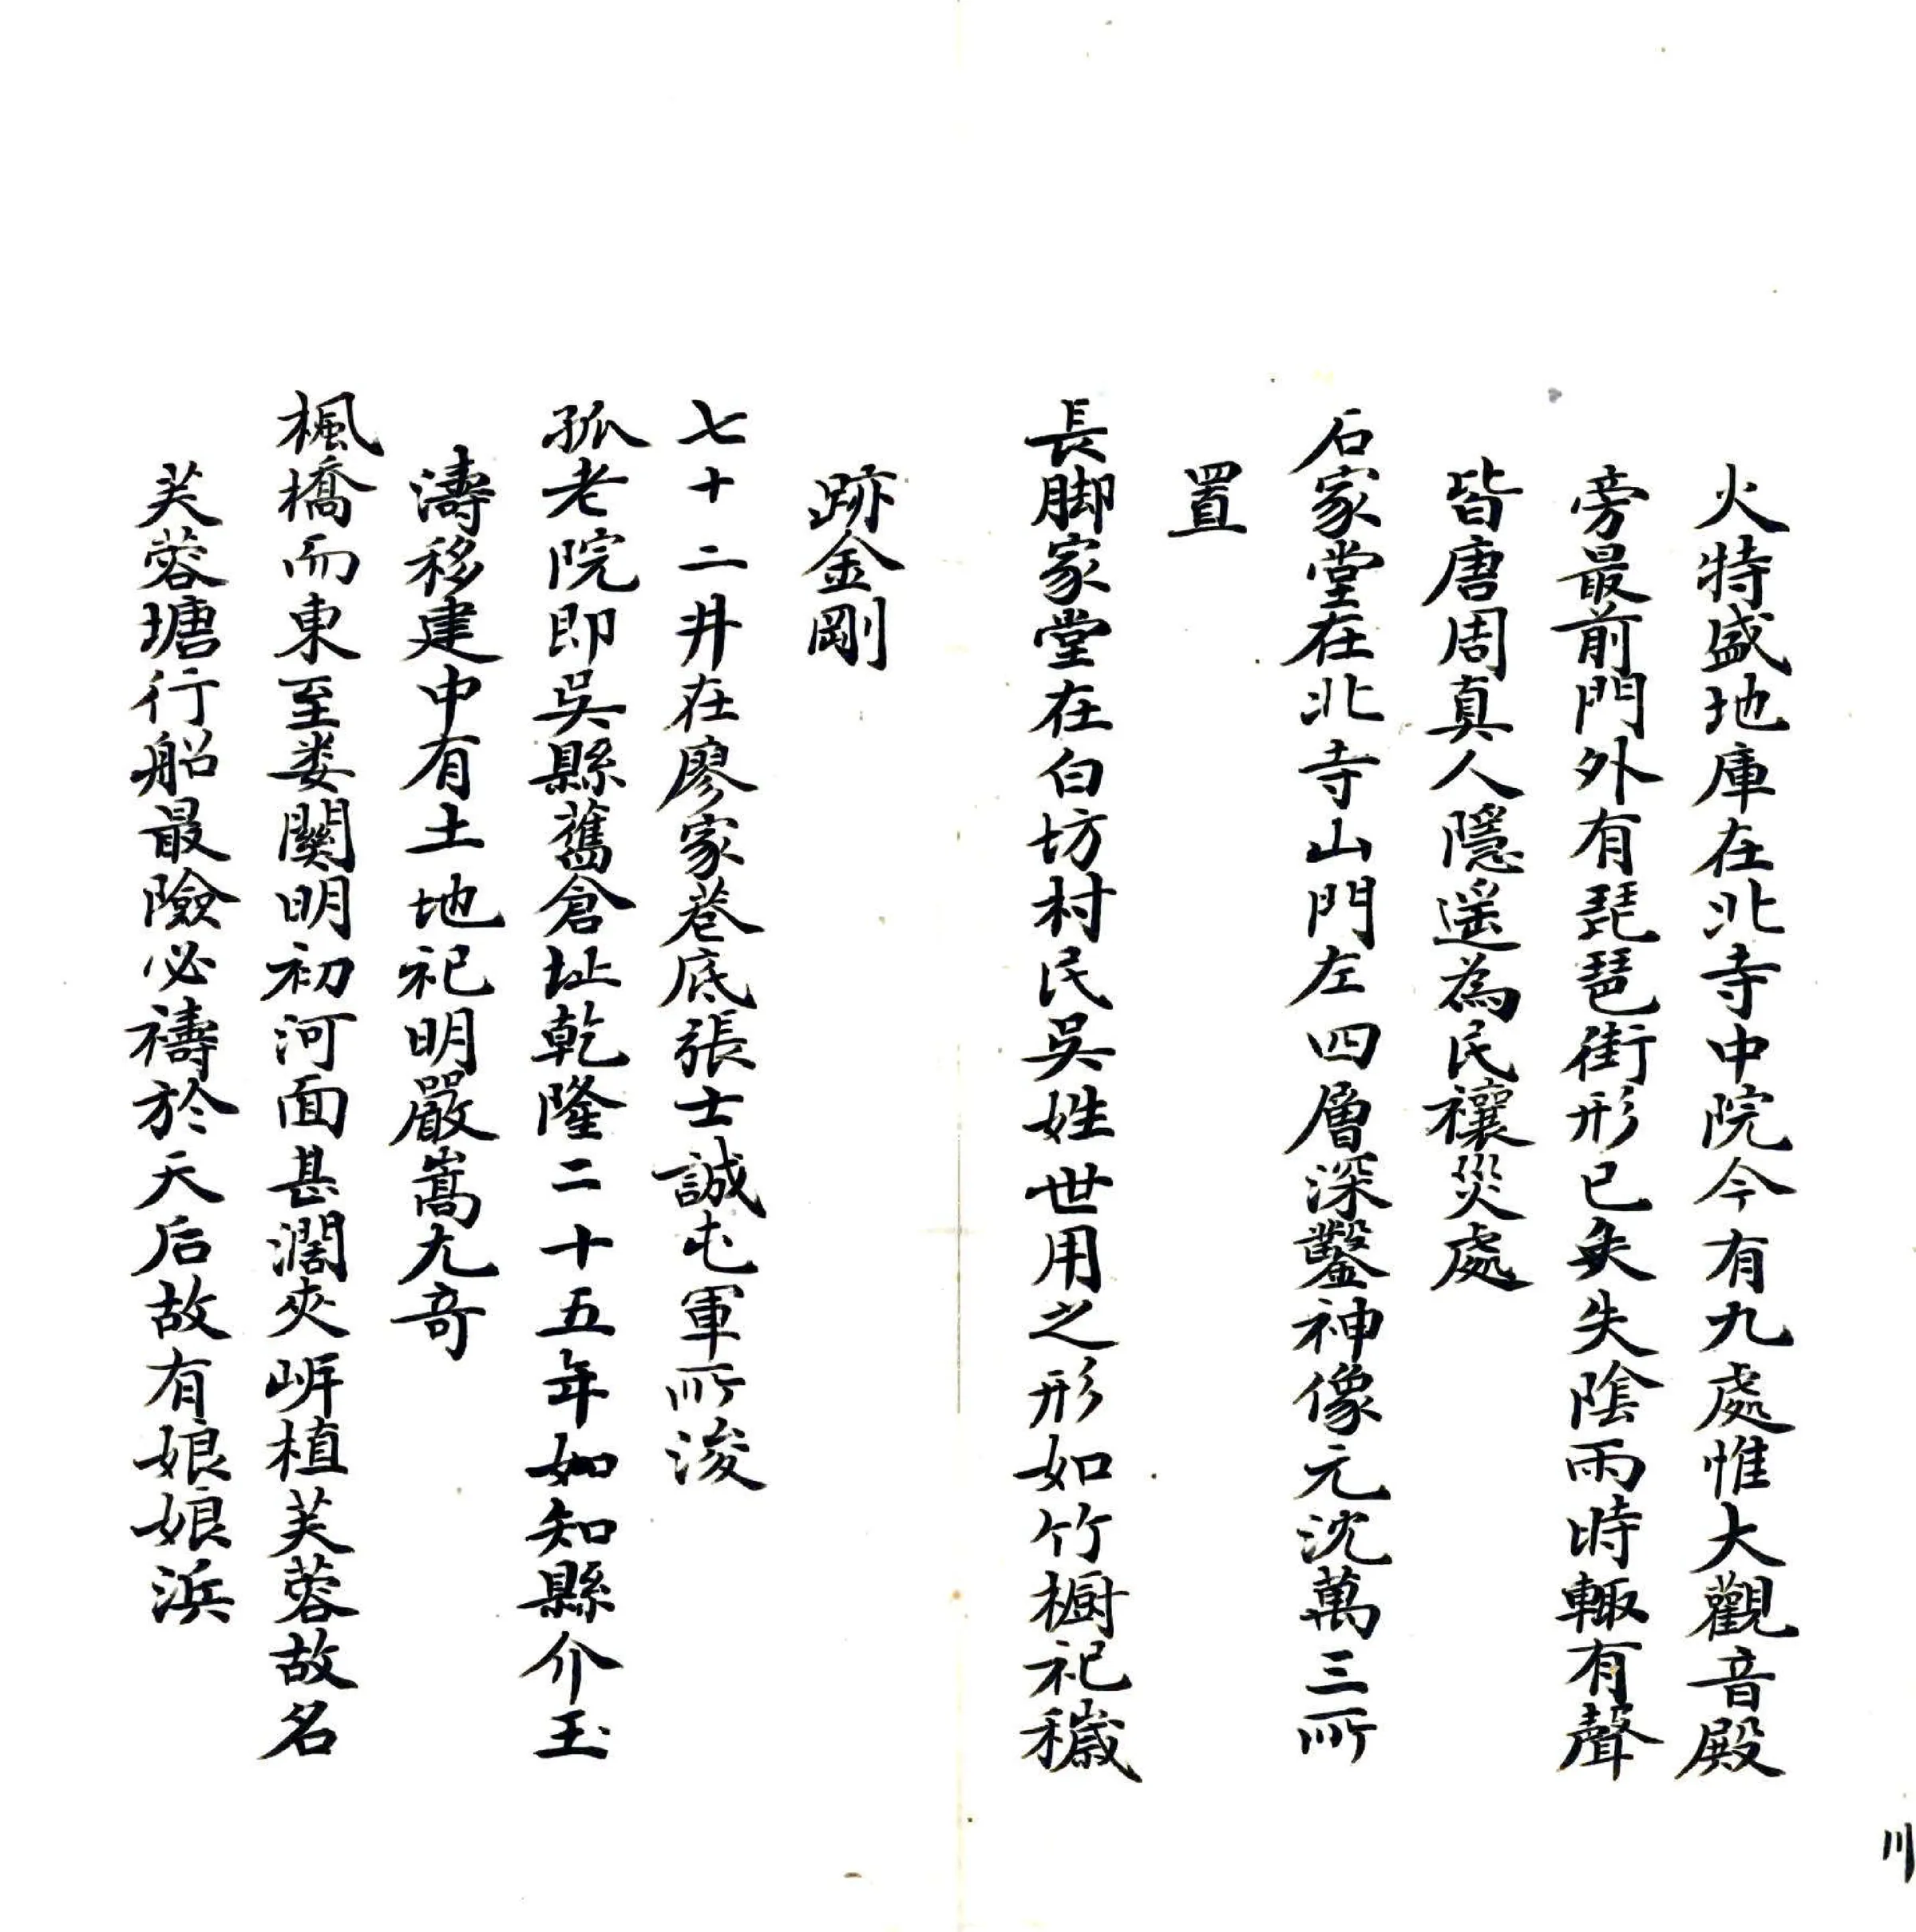 火特盛地庫在北寺中院今有九處惟大觀音殿
旁最前門外有琵琶街形已矣失陰雨時輙有聲
皆唐周真人隱遥為民禳災處
石家堂在北寺山門左四層深鑿神像元沈萬三所
置
長脚家堂在白坊村民吳姓世用之形如竹櫥祀穢
跡金剛
七十二井在廖家巷底張士誠屯軍所浚
孤老院即吳縣舊倉址乾隆二十五年如知縣介玉
濤移建中有土地祀明嚴嵩尢竒
楓橋而東至娄關明初河面甚濶夾㟁植芙蓉故名
芙蓉塘行船最險必禱於天后故有娘娘浜
川